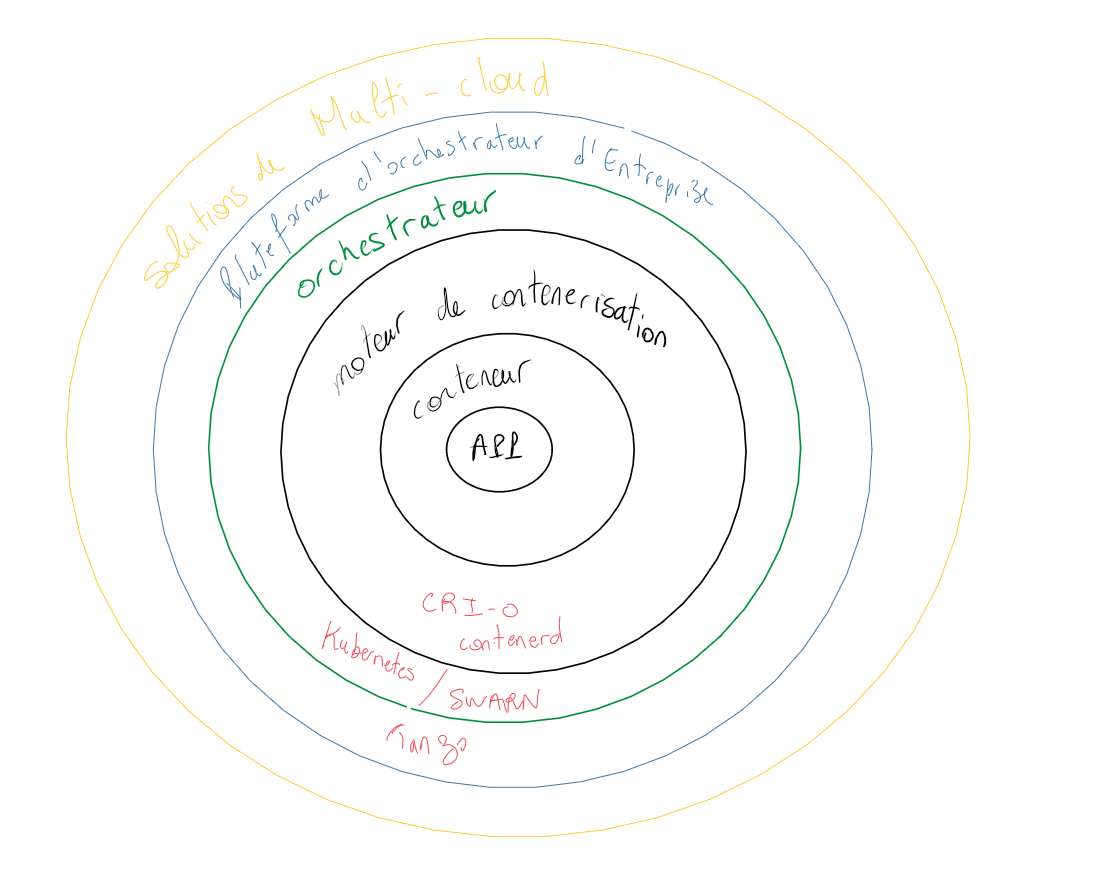 solutions de Multi - cloud
Plateforme d'orchestrateur d'Entreprise
orchestrateur
moteur de contenerisation
conteneur
API
CRI-O
contenerd
Kubernetes / SWARN
Tanzo